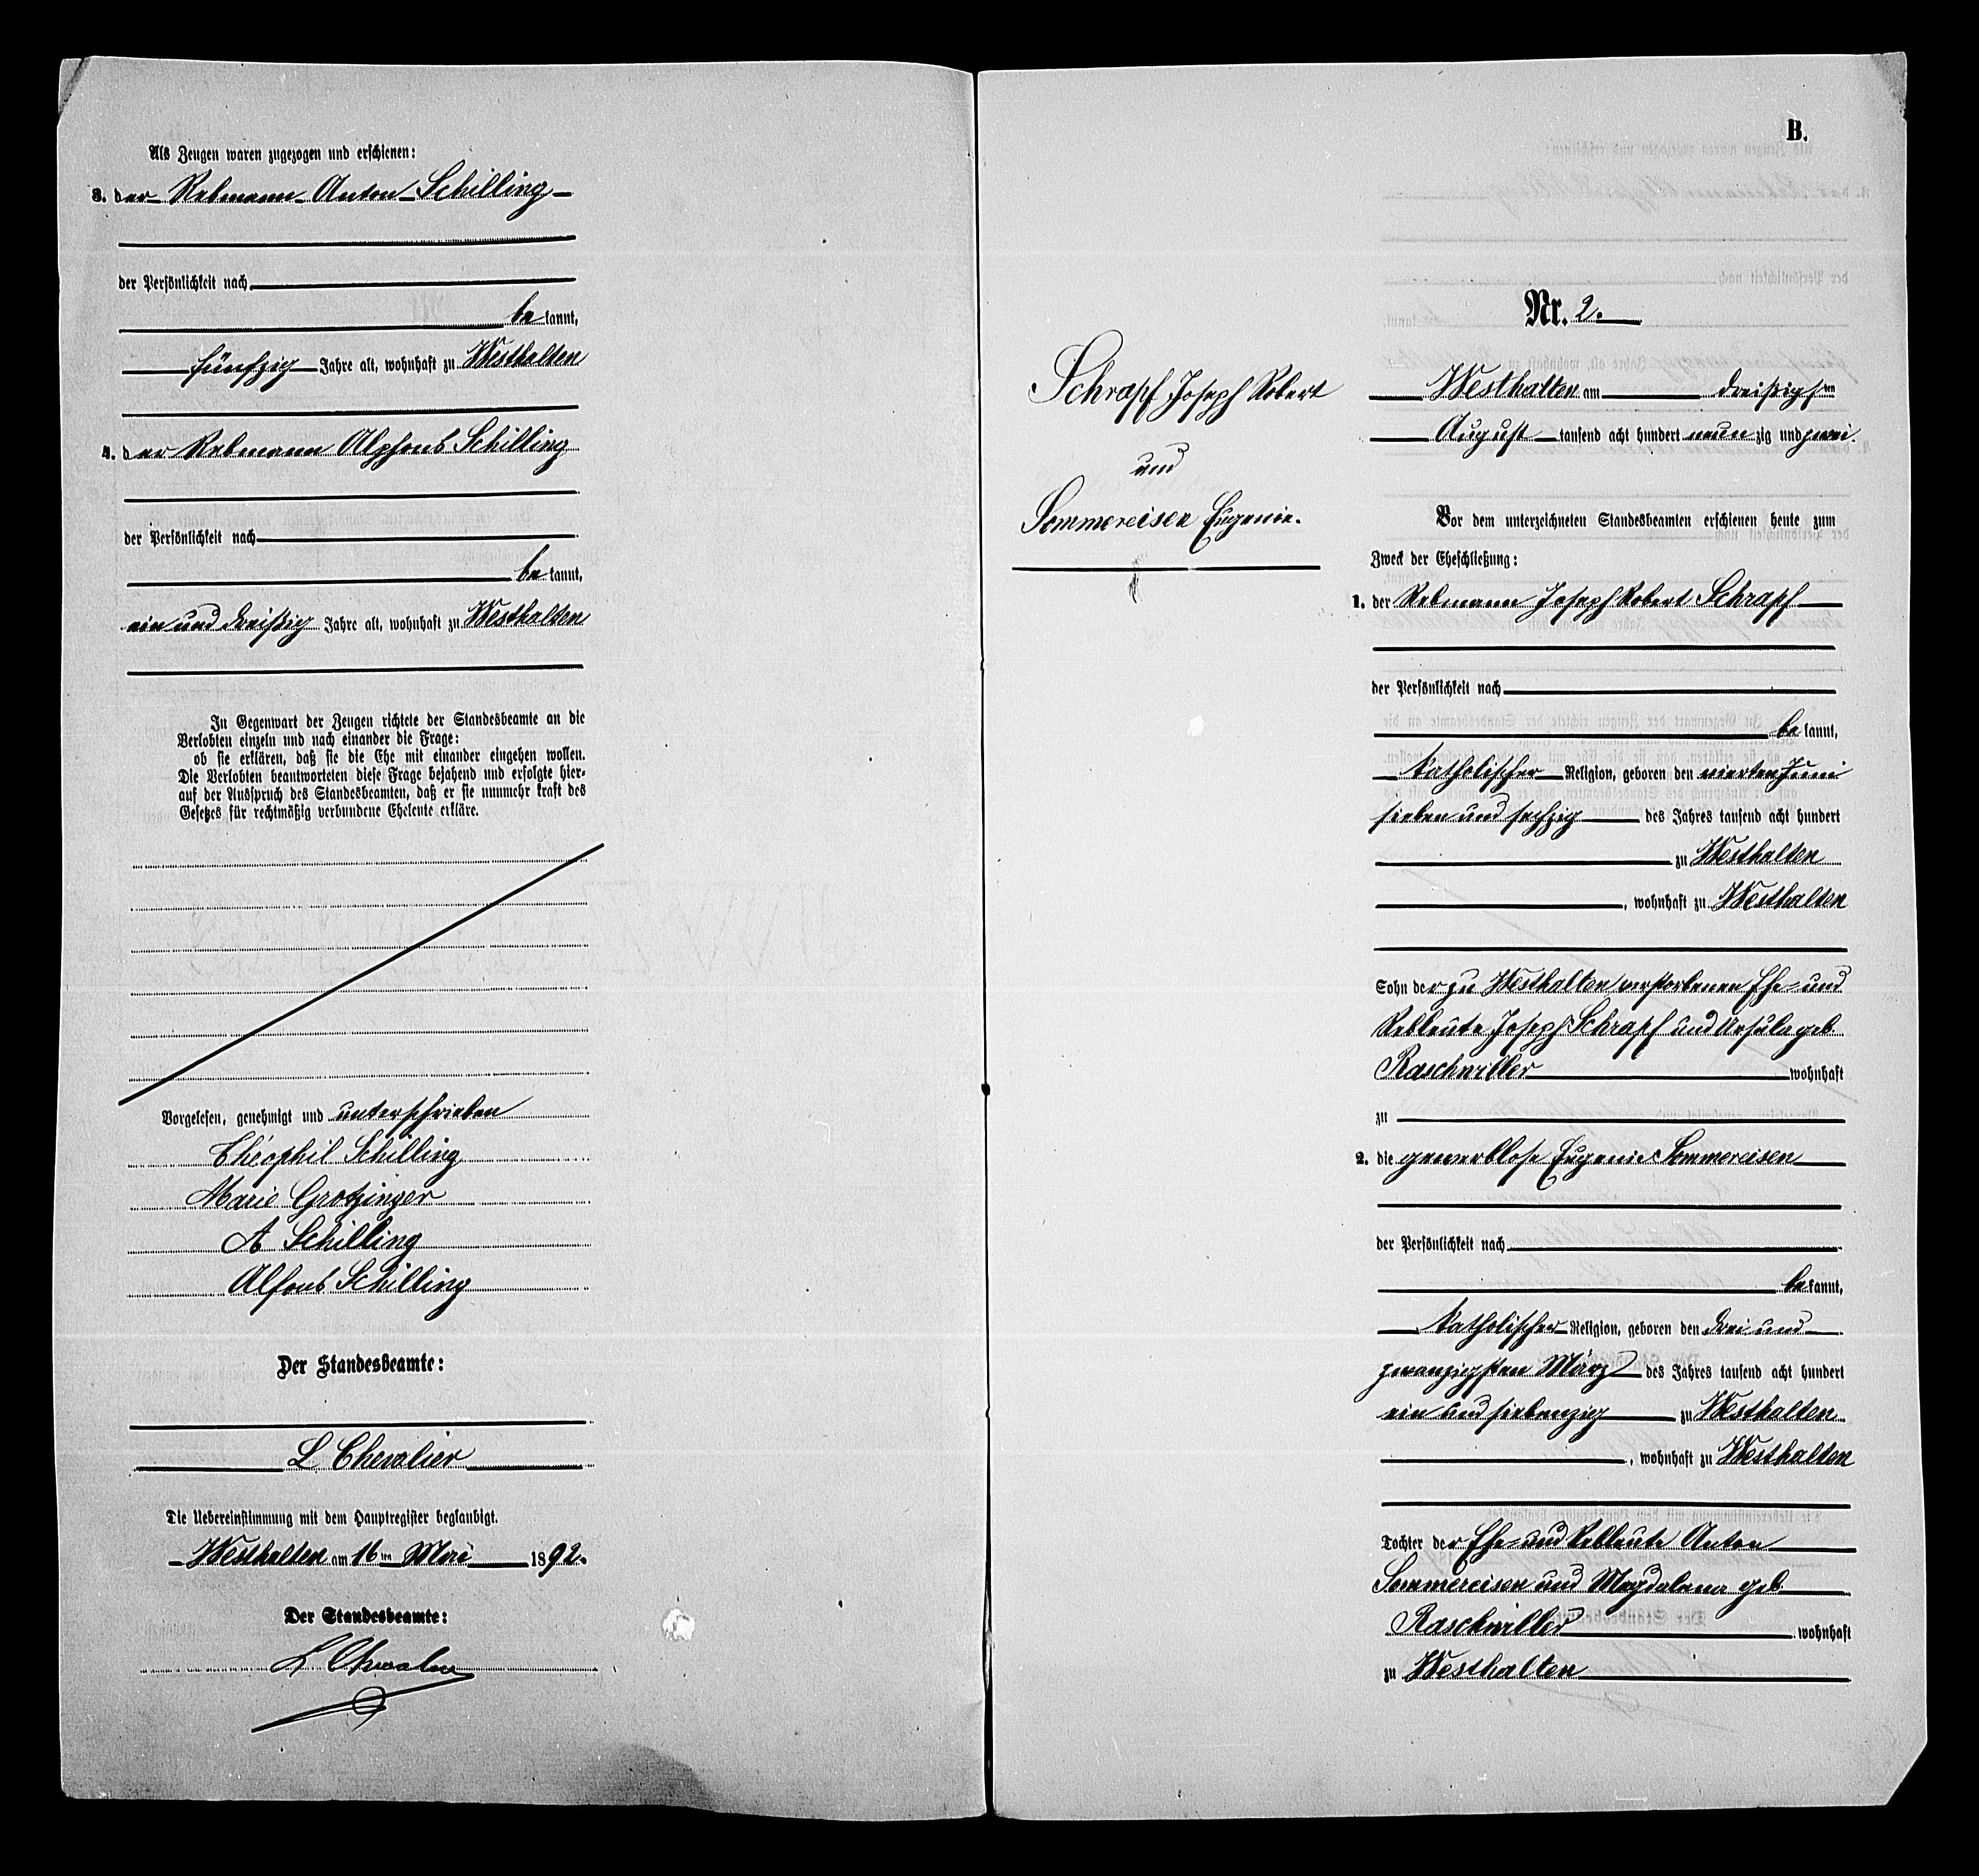 Als Zeugen waren zugezogen und erschienen:
3. der Rebmann Anton Schilling
der Persönlichkeit nach
bekannt,
fünfzig Jahre alt, wohnhaft zu Westhalten
4. der Rebmann Alphons Schilling
der Persönlichkeit nach
bekannt,
ein und dreißig Jahre alt, wohnhaft zu Westhalten
In Gegenwart der Zeugen richtete der Standesbeamte an die
Verlobten einzeln und nach einander die Frage:
ob sie erklären, daß sie die Ehe mit einander eingehen wollen.
Die Verlobten beantworteten diese Frage bejahend und erfolgte hier-
auf der Ausspruch des Standesbeamten, daß er sie nunmehr kraft des
Gesetzes für rechtmäßig verbundene Eheleute erkläre.
Vorgelesen, genehmigt und unterschrieben
Théophil Schilling
Marie Grotzinger
A Schilling
Alfons Schilling
Der Standesbeamte:
L Chevalier
Die Uebereinstimmung mit dem Hauptregister beglaubigt.
Westhalten am 16ten Mai 1892.
Der Standesbeamte:
L Chevalier
B.
Nr. 2.
Schrapf Joseph Robert
und
Sommereisen Eugenie.
Westhalten am dreißigsten
August tausend acht hundert neunzig und zwei.
Vor dem unterzeichneten Standesbeamten erschienen heute zum
Zweck der Eheschließung:
1. der Rebmann Joseph Robert Schrapf
der Persönlichkeit nach
bekannt,
katholischer Religion, geboren den vierten Juni
sieben und sechzig des Jahres tausend acht hundert
zu Westhalten
, wohnhaft zu Westhalten
Sohn der zu Westhalten verstorbenen Ehe- und
Rebleute Joseph Schrapf und Ursula geb.
Raschwiller wohnhaft
zu
2. die gewerblose Eugenie Sommereisen
der Persönlichkeit nach
bekannt,
katholischer Religion, geboren den drei und
zwanzigsten März des Jahres tausend acht hundert
ein und siebenzig zu Westhalten
, wohnhaft zu Westhalten
Tochter der Ehe- und Rebleute Anton
Sommereisen und Magdalena geb.
Raschwiller wohnhaft
zu Westhalten